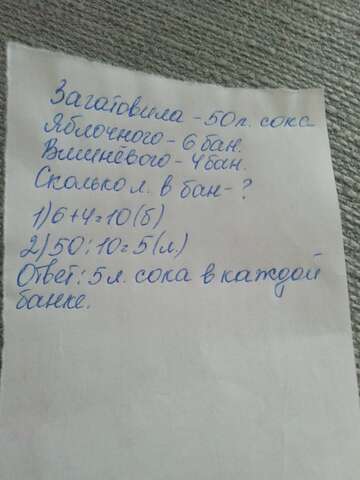 Загатовила - 50 л. сока
Яблочного - 6 бан.
Вишнёвого - 4 бан.
Сколько л. в бан - ?
1) 6+4=10(б)
2) 50:10=5(л)
Ответ: 5 л. сока в каждой
банке.